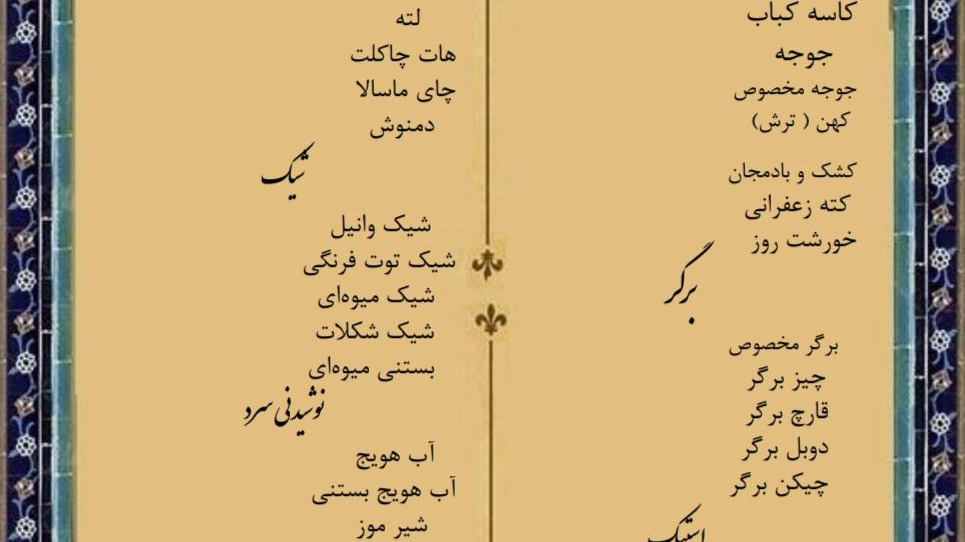 کاسه کباب
جوجه
جوجه مخصوص
کهن ( ترش)
کشک و بادمجان
کته زعفرانی
خورشت روز
برگر
برگر مخصوص
چیز برگر
قارچ برگر
دوبل برگر
چیکن برگر
استیک
لته
هات چاکلت
چای ماسالا
دمنوش
شیک
شیک وانیل
شیک توت فرنگی
شیک میوه‌ای
شیک شکلات
بستنی میوه‌ای
نوشیدنی سرد
آب هویج
آب هویج بستنی
شیر موز